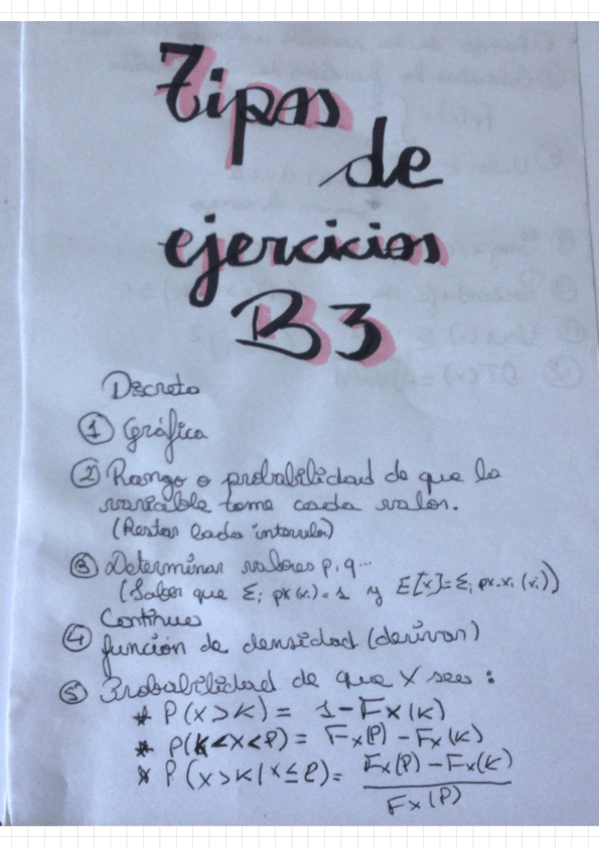 Tipos
de
ejercicios
B3
Discreto
① Gráfica
② Rango o probabilidad de que la
variable tome cada valor.
(Restar cada intervalo)
③ Determinar valores p, q...
(Saber que Σi px(xi)=1 y E[x]=Σi px·xi (xi))
Continuo
④ función de densidad (derivar)
⑤ Probabilidad de que X sea:
* P(x>k) = 1-Fx(k)
* P(k<x<P) = Fx(P) - Fx(k)
* P(x>k|x≤P) = Fx(P) - Fx(k)
Fx(P)